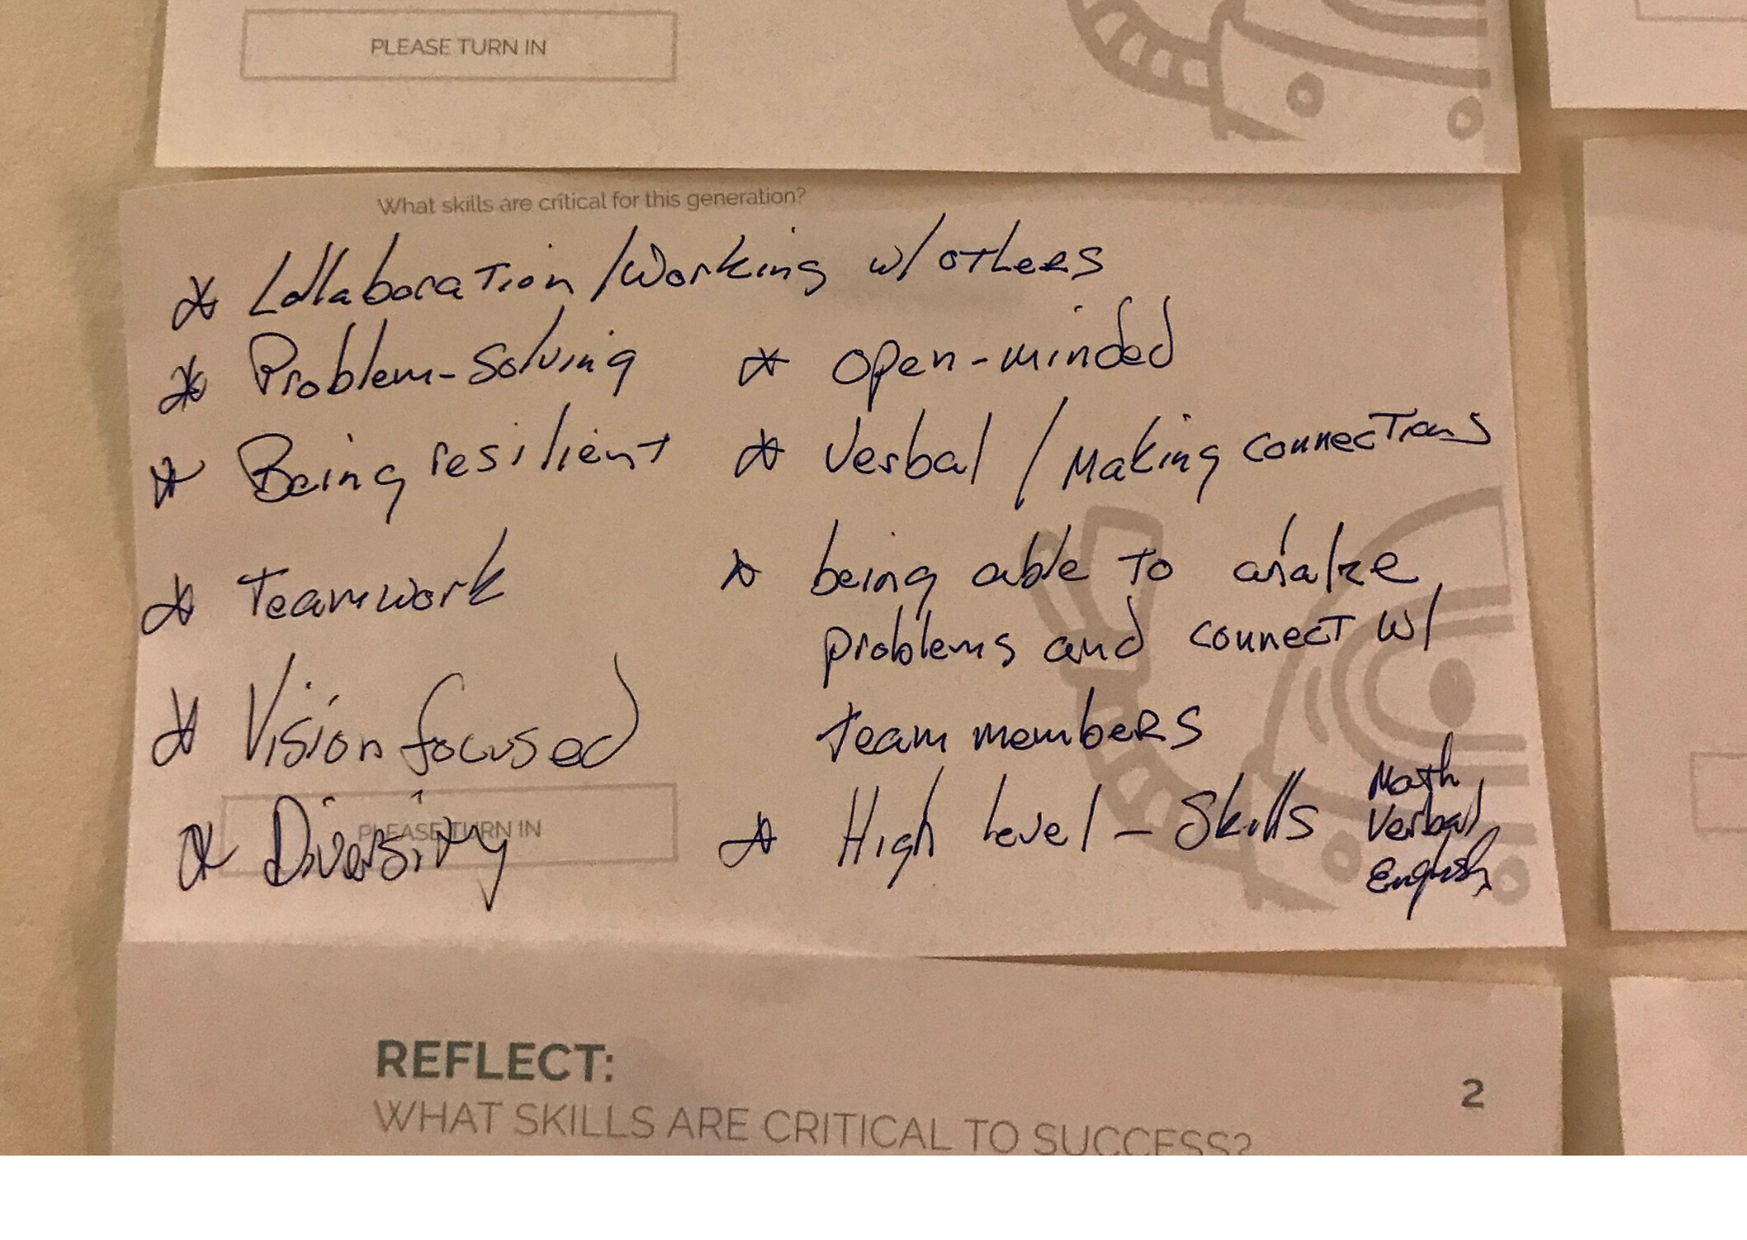 PLEASE TURN IN
What skills are critical for this generation?
* Collaboration/Working w/ others
* Problem-Solving
* Open-minded
* Being resilient
* Verbal / Making connections
* Teamwork
* being able to
problems and connect w/
team members
* Vision focused
* Diversity
PLEASE TURN IN
* High level - Skills
Math
Verbal
English
REFLECT:
2
WHAT SKILLS ARE CRITICAL TO SUCCESS?